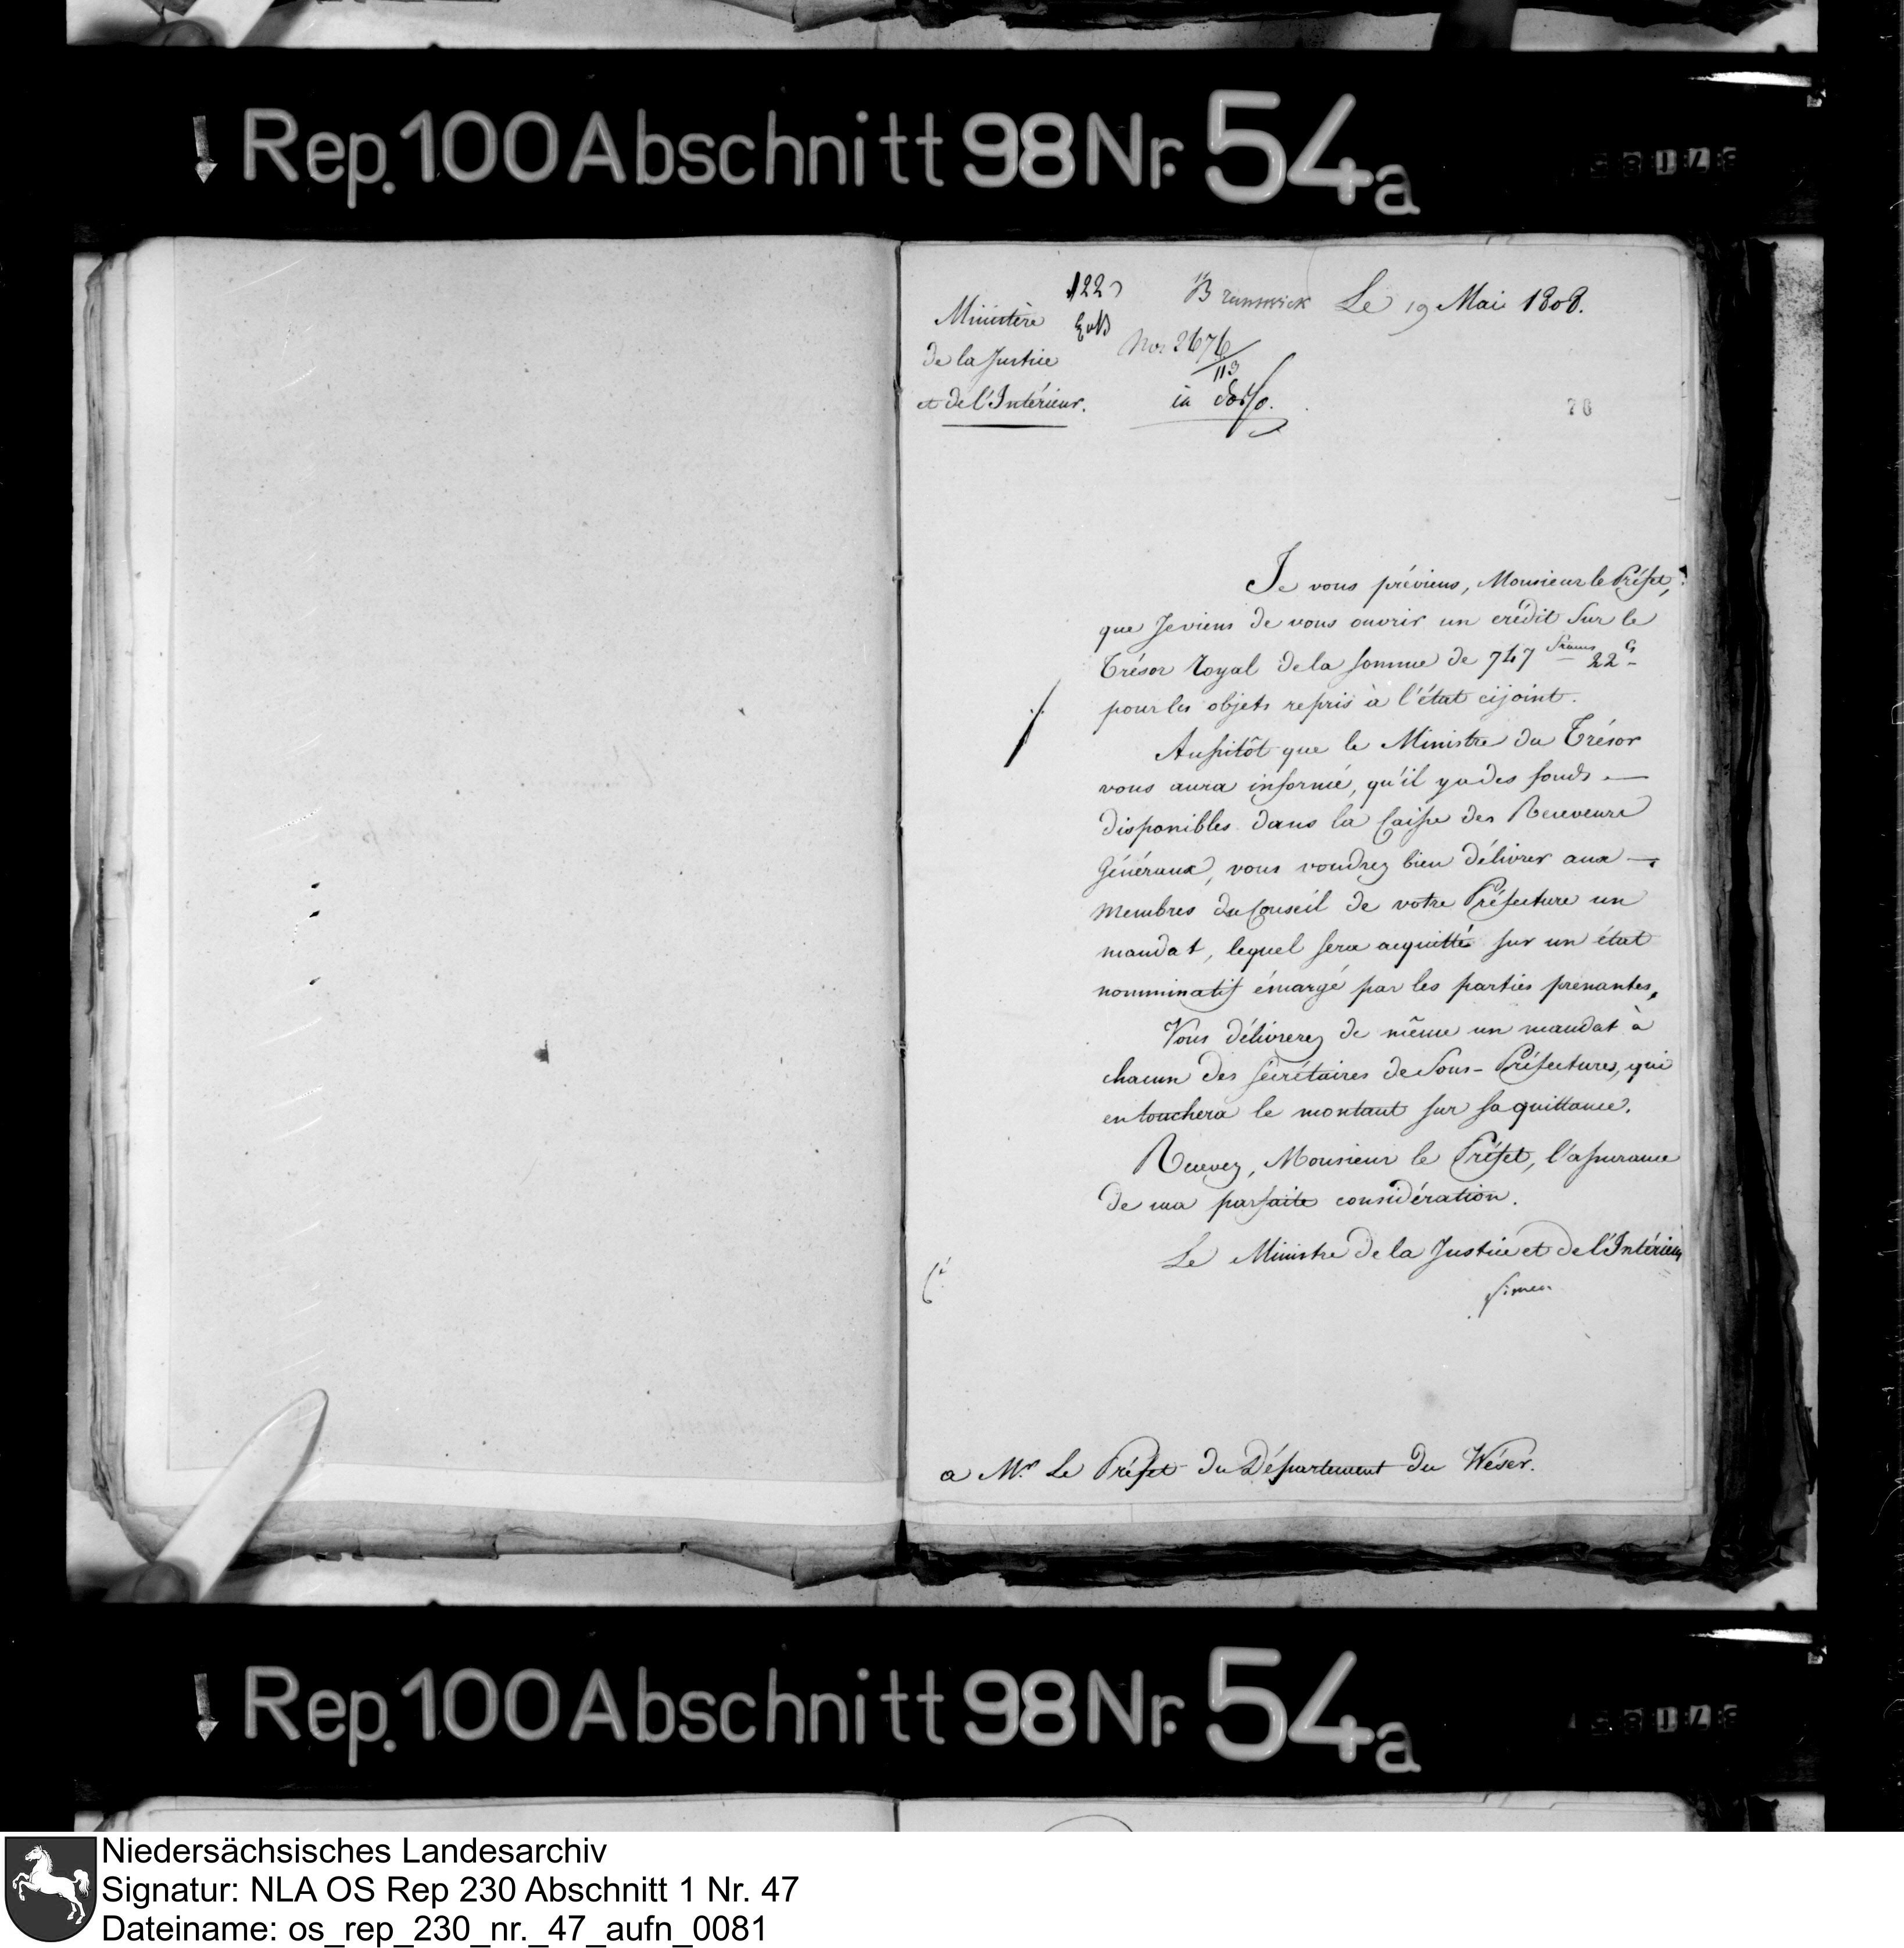 Rep. 100 Abschnitt 98 Nr. 54a
122
Brunswick Le 19 Mai 1808.
Ministère
de la Justice
et de l'Intérieur.
2676/113
in dorso.
70
Je vous préviens, Monsieur le Préfet,
que Je viens de vous ouvrir un crédit Sur le
Trésor Royal de la somme de 747 francs 22 Cs
pour les objets repris à l'état cijoint.
Aussitôt que le Ministre du Trésor
vous aura informé, qu'il y a des fonds
disponibles dans la Caisse des Receveurs
Généraux, vous voudrez bien délivrer aux
Membres du Conseil de votre Préfecture un
mandat, lequel sera acquitté sur un état
nomminatif émargé par les parties prenantes,
Vous délivrerez de même un mandat à
chacun des Secrétaires de Sous-Préfectures, qui
en touchera le montant sur sa quittance.
Recevez, Monsieur le Préfet, l'assurance
de ma parfaite considération.
Le Ministre de la Justice et de l'Intérieur
Simeon
a Mr. Le Préfet du Département du Wéser.
Rep. 100 Abschnitt 98 Nr. 54a
Niedersächsisches Landesarchiv
Signatur: NLA OS Rep 230 Abschnitt 1 Nr. 47
Dateiname: os_rep_230_nr._47_aufn_0081